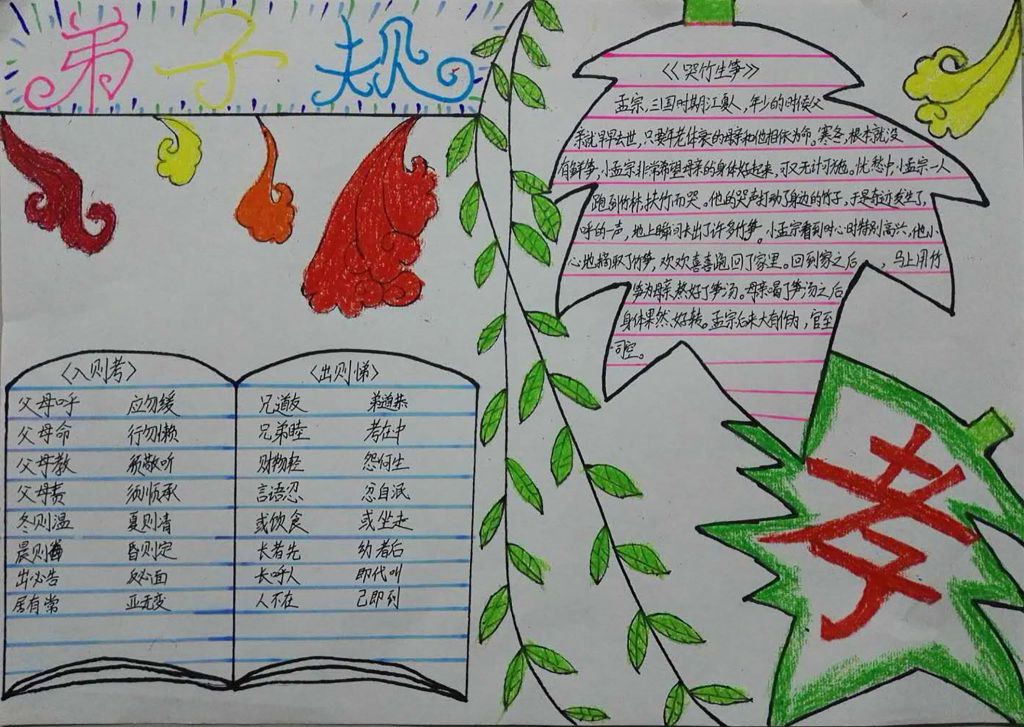 弟子规
《入则孝》
父母呼 应勿缓
父母命 行勿懒
父母教 须敬听
父母责 须顺承
冬则温 夏则凊
晨则省 昏则定
出必告 反必面
居有常 业无变
《出则悌》
兄道友 弟道恭
兄弟睦 孝在中
财物轻 怨何生
言語忍 忿自泯
或饮食 或坐走
长者先 幼者后
长呼人 即代叫
人不在 己即到
《哭竹生笋》
孟宗,三国时期江夏人,年少的时候父
亲就早早去世,只要年老体衰的母亲和他相依为命。寒冬,根本就没
有鲜笋,小孟宗非常希望母亲的身体好起来,可又无计可施。忧愁中,小孟宗一人
跑到竹林,扶竹而哭。他的哭声打动了身边的竹子,于是奇迹发生了,
呼的一声,地上瞬间长出了许多竹笋。小孟宗看到时心时特别高兴,他小
心地摘取了竹笋,欢欢喜喜跑回了家里。回到家之后,马上用竹
笋为母亲熬好了笋汤。母亲喝了笋汤之后
身体果然好转。孟宗后来大有作为,官至
司空。
孝